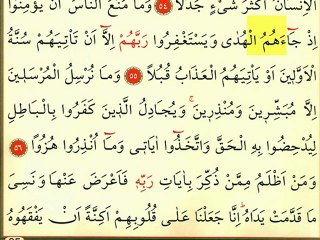 الْاِنْسَانُ اَكْثَرَ شَىْءٍ جَدَلًا ﴿٥٤﴾ وَمَا مَنَعَ النَّاسَ اَنْ يُؤْمِنُٓوا
اِذْ جَٓاءَهُمُ الْهُدٰى وَيَسْتَغْفِرُوا رَبَّهُمْ اِلَّٓا اَنْ تَأْتِيَهُمْ سُنَّةُ
الْاَوَّلٖينَ اَوْ يَأْتِيَهُمُ الْعَذَابُ قُبُلًا ﴿٥٥﴾ وَمَا نُرْسِلُ الْمُرْسَلٖينَ
اِلَّا مُبَشِّرٖينَ وَمُنْذِرٖينَۚ وَيُجَادِلُ الَّذٖينَ كَفَرُوا بِالْبَاطِلِ
لِيُدْحِضُوا بِهِ الْحَقَّ وَاتَّخَذُٓوا اٰيَاتٖى وَمَٓا اُنْذِرُوا هُزُوًا ﴿٥٦﴾
وَمَنْ اَظْلَمُ مِمَّنْ ذُكِّرَ بِاٰيَاتِ رَبِّهٖ فَاَعْرَضَ عَنْهَا وَنَسِىَ
مَا قَدَّمَتْ يَدَاهُؕ اِنَّا جَعَلْنَا عَلٰى قُلُوبِهِمْ اَكِنَّةً اَنْ يَفْقَهُوهُ